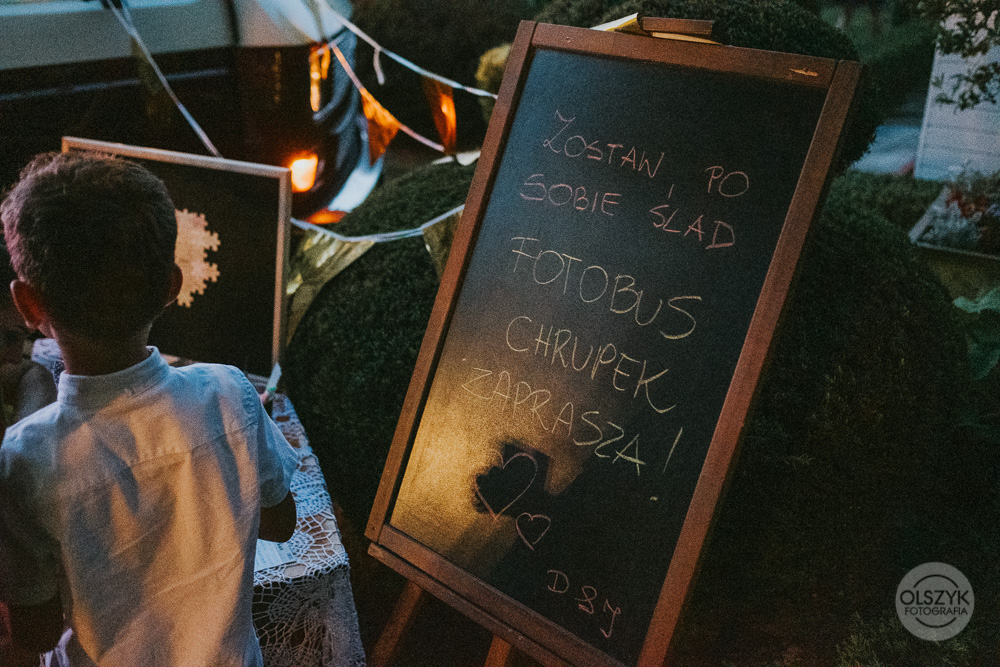 ZOSTAW PO
SOBIE ŚLAD
FOTOBUS
CHRUPEK
ZAPRASZA!
D&J
OLSZYK
FOTOGRAFIA